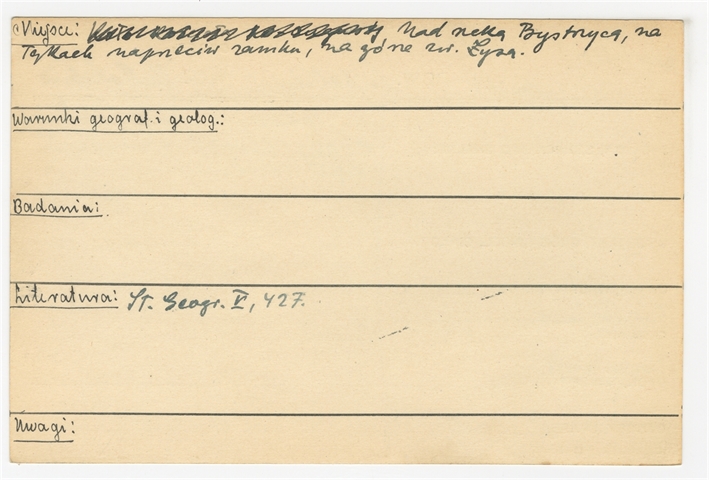 Miejsce: Nad rzeką Bystrzycą, na
Tękach naprzeciw zamku, na górze zw. Łysą.
Warunki geograf. i geolog.:
Badania:
Literatura: Sł. Geogr. V, 427.
Uwagi: